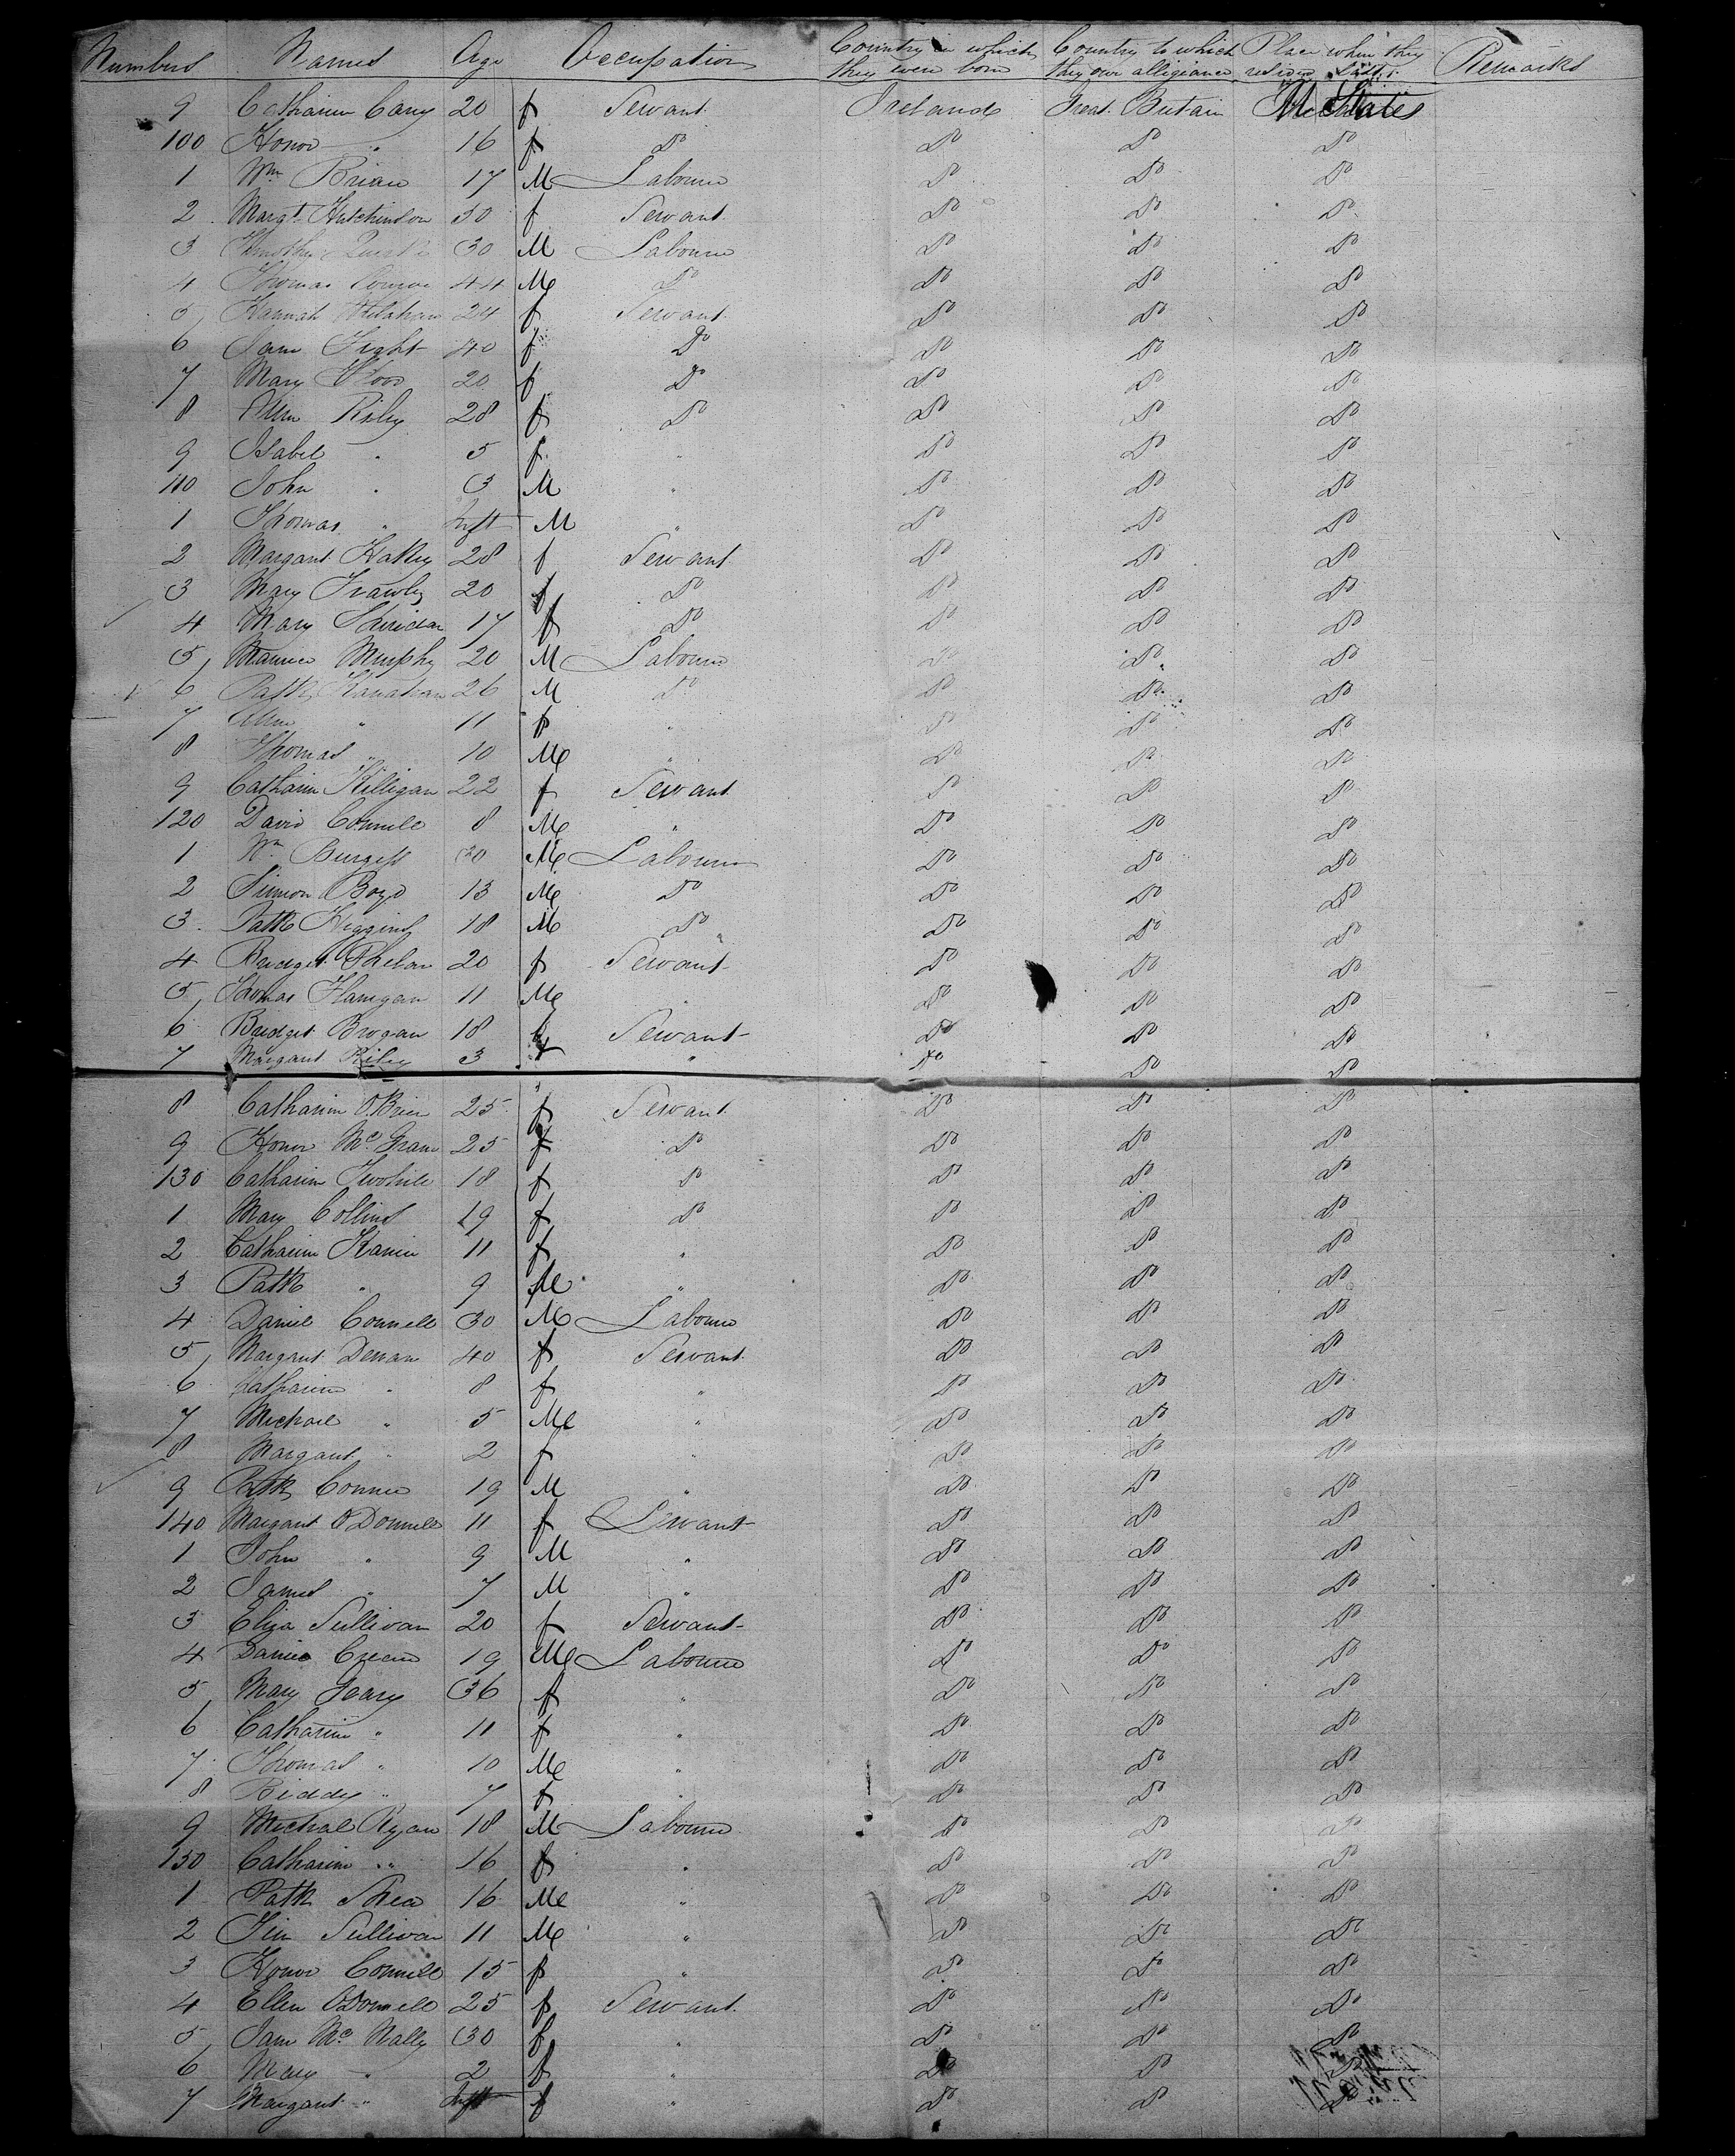 Numbers Names Age Occupation Country in which they were born Country to which they owe allegiance Place where they reside Remarks
9 Catharin Cary 20 f Servant Ireland Great Britain States
100 Honor " 16 f Do Do Do Do
1 Wm Brian 17 M Labourer Do Do Do
2 Margt Hutchinson 30 f Servant Do Do Do
3 30 M Labourer Do Do Do
4 Thomas 44 M Do Do Do Do
5 Hannah 24 f Servant Do Do Do
6 Jane 40 f Do Do Do Do
7 Mary 20 f Do Do Do Do
8 Ann Riley 28 f Do Do Do Do
9 Isabel " 5 f " Do Do Do
110 John " 3 M " Do Do Do
1 Thomas " Inft M " Do Do Do
2 Margaret 28 f Servant Do Do Do
3 Mary Frawley 20 f Do Do Do Do
4 Mary Sheridan 17 f Do Do Do Do
5 Maurice Murphy 20 M Labourer Do Do Do
6 Patk 26 M Do Do Do Do
7 Ann " 11 f " Do Do Do
8 Thomas " 10 M " Do Do Do
9 Catharin Killigan 22 f Servant Do Do Do
120 David Connell 8 M " Do Do Do
1 Wm Burgess 30 M Labourer Do Do Do
2 Simon Boyd 13 M Do Do Do Do
3 Patk Higgins 18 M Do Do Do Do
4 Bridget Phelan 20 f Servant Do Do Do
5 Thomas Flanigan 11 M " Do Do Do
6 Bridget Brogan 18 f Servant Do Do Do
7 Margaret Riley 3 f " Do Do Do
8 Catharin O'Brien 25 f Servant Do Do Do
9 Honor 25 f Do Do Do Do
130 Catharin Twohill 18 f Do Do Do Do
1 Mary Collins 19 f Do Do Do Do
2 Catharin 11 f " Do Do Do
3 Patk " 9 M " Do Do Do
4 Daniel Connell 30 M Labourer Do Do Do
5 Margaret 40 f Servant Do Do Do
6 Catharin " 8 f " Do Do Do
7 Michael " 5 M " Do Do Do
8 Margaret " 2 f " Do Do Do
9 Patk Connor 19 M " Do Do Do
140 Margaret O'Donnell 11 f Servant Do Do Do
1 John " 9 M " Do Do Do
2 James " 7 M " Do Do Do
3 Eliza Sullivan 20 f Servant Do Do Do
4 Daniel 19 M Labourer Do Do Do
5 Mary Geary 36 f " Do Do Do
6 Catharin " 11 f " Do Do Do
7 Thomas " 10 M " Do Do Do
8 Biddy " 7 f " Do Do Do
9 Michael Ryan 18 M Labourer Do Do Do
150 Catharin " 16 f " Do Do Do
1 Patk Shea 16 M " Do Do Do
2 Tim Sullivan 11 M " Do Do Do
3 Honor Connell 15 f " Do Do Do
4 Ellen O'Donnell 25 f Servant Do Do Do
5 Jane Mc Nally 30 f " Do Do Do
6 Mary " 2 f " Do Do Do
7 Margaret " Inft f " Do Do Do